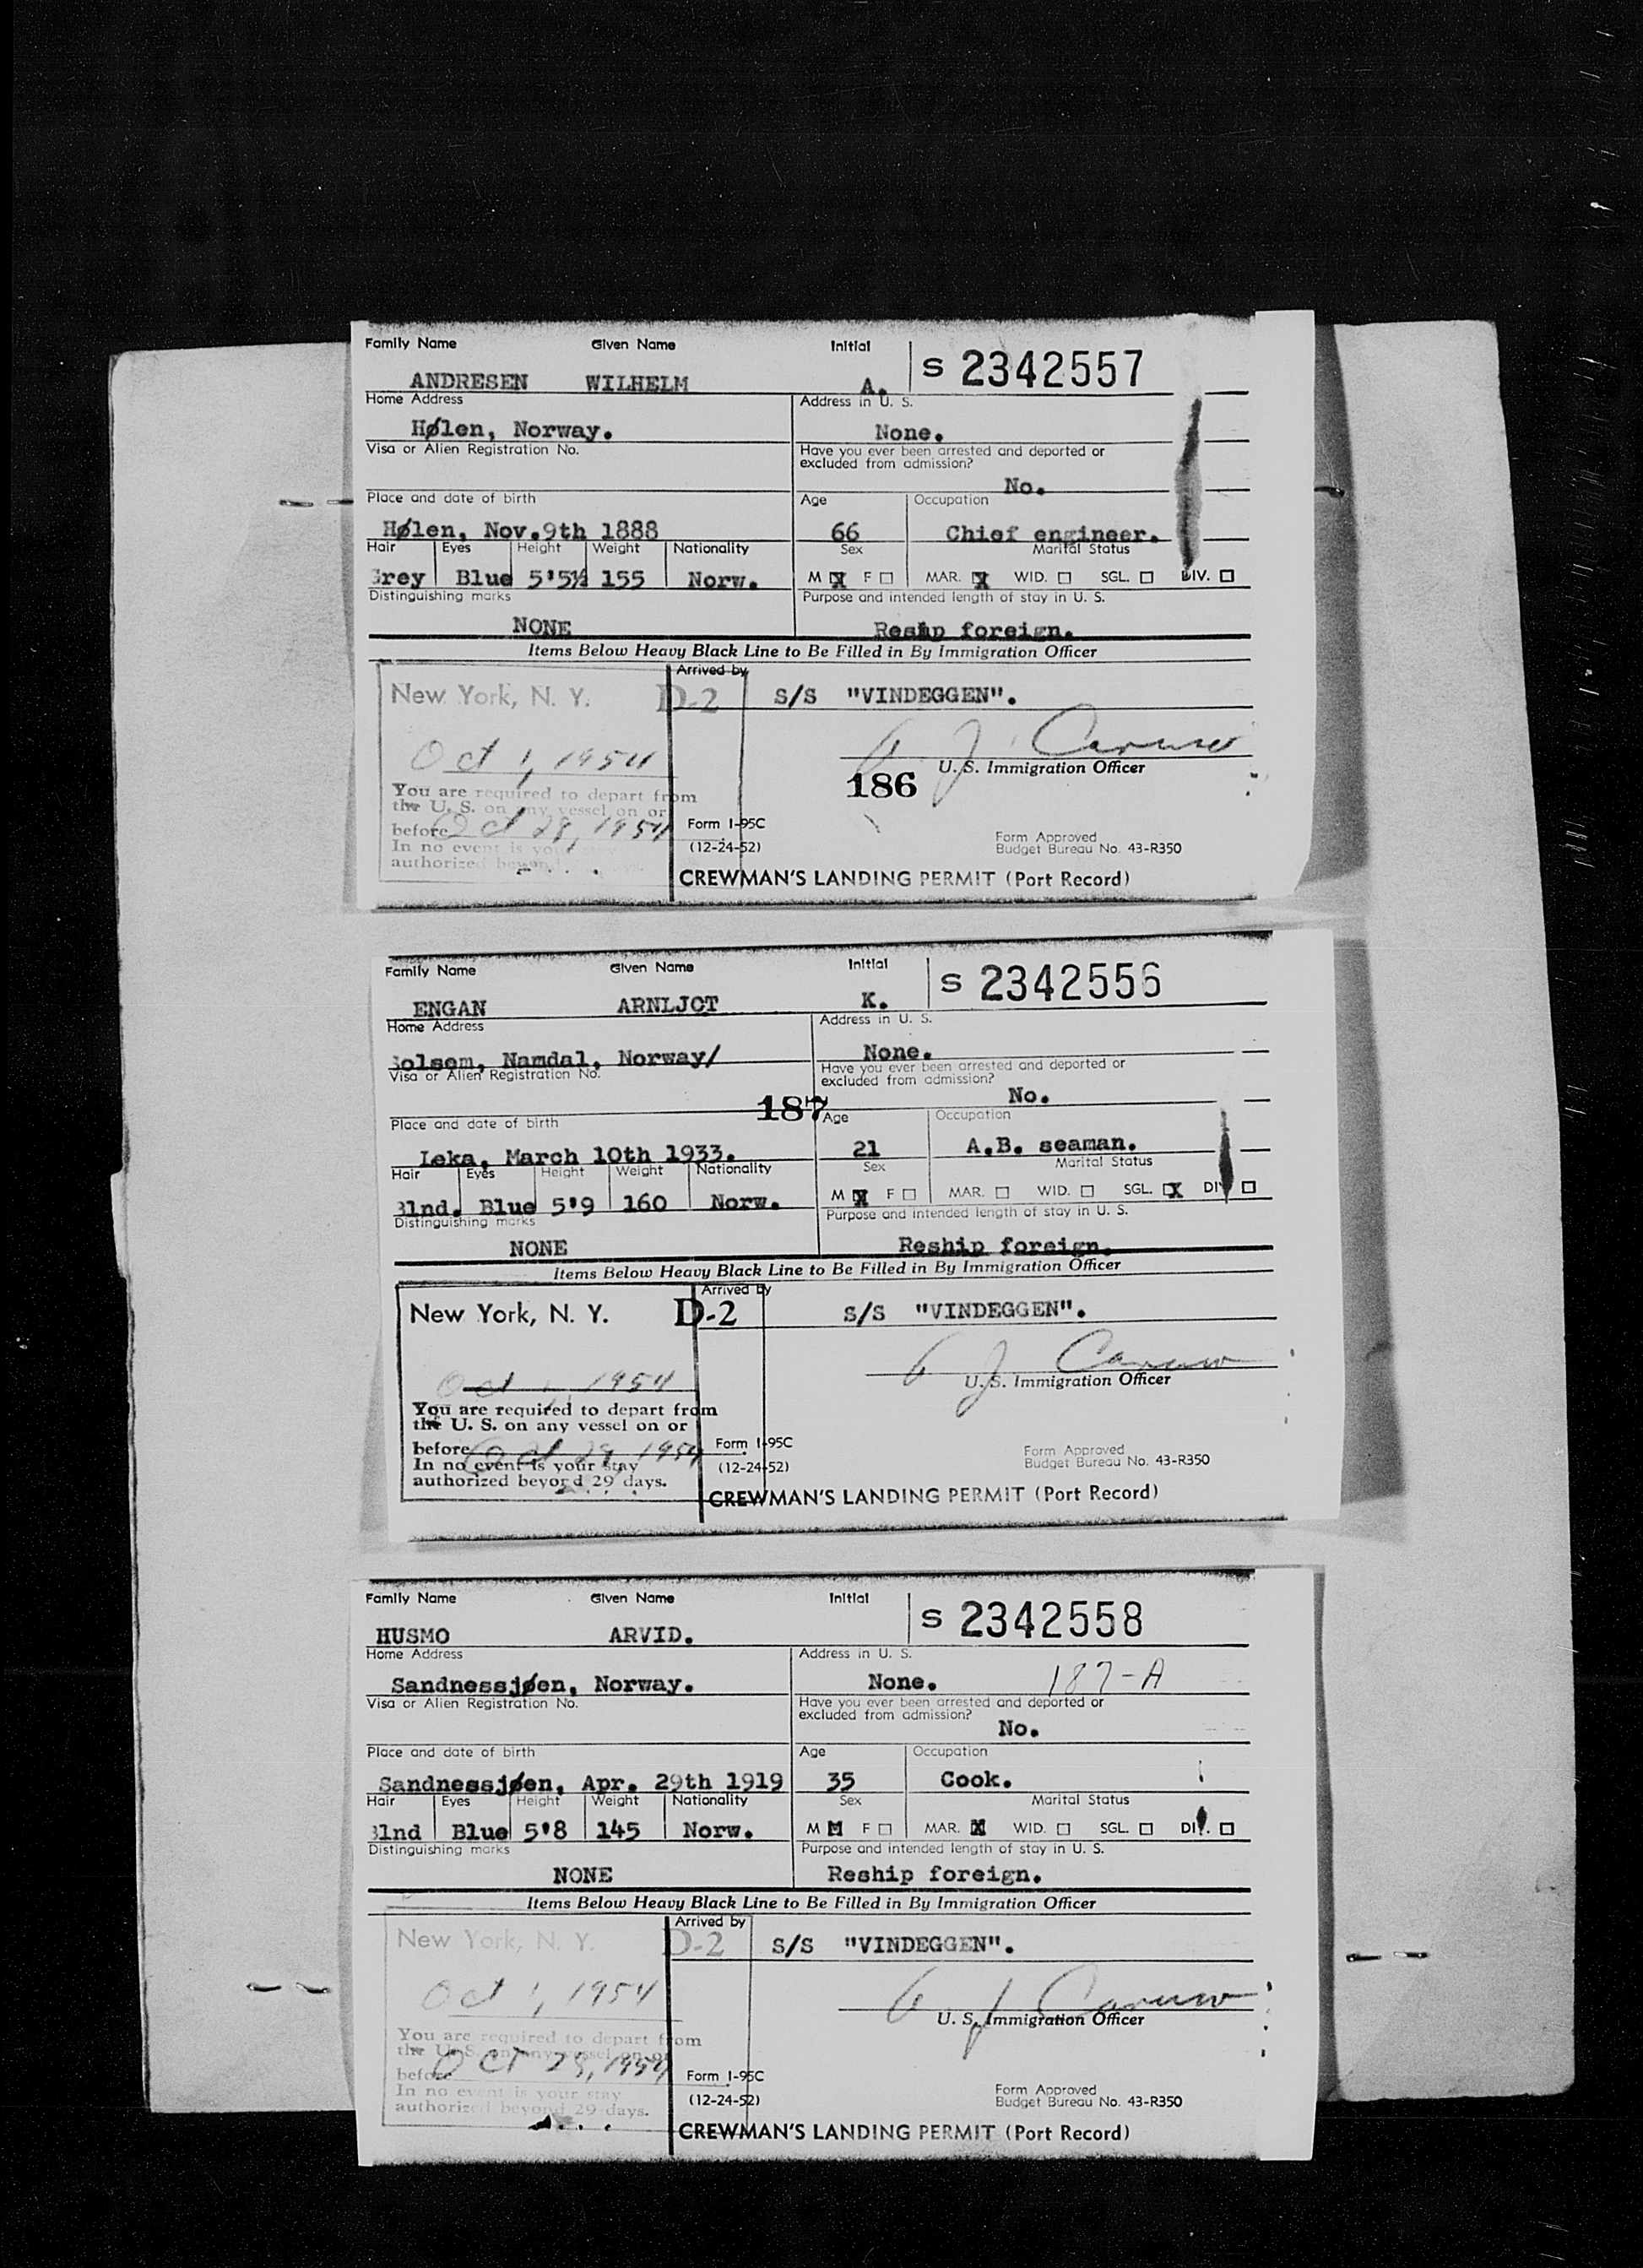 Family Name Given Name Initial S 2342557
ANDRESEN WILHELM A.
Home Address Address in U. S.
Hølen, Norway. None.
Visa or Alien Registration No. Have you ever been arrested and deported or
excluded from admission?
No.
Place and date of birth Age Occupation
Hølen, Nov.9th 1888 66 Chief engineer.
Hair Eyes Height Weight Nationality Sex Marital Status
Grey Blue 5'5½ 155 Norw. M X F MAR. X WID. SGL. DIV.
Distinguishing marks Purpose and intended length of stay in U. S.
NONE Reship foreign.
Items Below Heavy Black Line to Be Filled in By Immigration Officer
Arrived by
New York, N. Y. D-2 S/S "VINDEGGEN".
Oct 1, 1954 A J Caruso
186 U. S. Immigration Officer
You are required to depart from
the U. S. on any vessel on or
before Oct 29, 1954 Form I-95C
In no event is your (12-24-52) Form Approved
Budget Bureau No. 43-R350
authorized beyond
CREWMAN'S LANDING PERMIT (Port Record)
Family Name Given Name Initial S 2342556
ENGAN ARNLJOT K.
Home Address Address in U. S.
Solsem, Namdal, Norway/ None.
Visa or Alien Registration No. Have you ever been arrested and deported or
excluded from admission?
187 No.
Place and date of birth Age Occupation
Leka, March 10th 1933. 21 A.B. seaman.
Hair Eyes Height Weight Nationality Sex Marital Status
Blnd. Blue 5'9 160 Norw. M X F MAR. WID. SGL. X DIV.
Distinguishing marks Purpose and intended length of stay in U. S.
NONE Reship foreign.
Items Below Heavy Black Line to Be Filled in By Immigration Officer
Arrived by
New York, N. Y. D-2 S/S "VINDEGGEN".
Oct 1, 1954 A J Caruso
U. S. Immigration Officer
You are required to depart from
the U. S. on any vessel on or
before Oct 29, 1954 Form I-95C
In no event is your stay (12-24-52) Form Approved
Budget Bureau No. 43-R350
authorized beyond 29 days.
CREWMAN'S LANDING PERMIT (Port Record)
Family Name Given Name Initial S 2342558
HUSMO ARVID.
Home Address Address in U. S.
Sandnessjøen, Norway. None. 187-A
Visa or Alien Registration No. Have you ever been arrested and deported or
excluded from admission?
No.
Place and date of birth Age Occupation
Sandnessjøen, Apr. 29th 1919 35 Cook.
Hair Eyes Height Weight Nationality Sex Marital Status
Blnd Blue 5'8 145 Norw. M M F MAR. X WID. SGL. DIV.
Distinguishing marks Purpose and intended length of stay in U. S.
NONE Reship foreign.
Items Below Heavy Black Line to Be Filled in By Immigration Officer
Arrived by
New York, N. Y. D-2 S/S "VINDEGGEN".
Oct 1, 1954 A J Caruso
U. S. Immigration Officer
You are required to depart from
the U. S. on any vessel on or
before Oct 29, 1954 Form I-95C
In no event is your stay (12-24-52) Form Approved
Budget Bureau No. 43-R350
authorized beyond 29 days.
CREWMAN'S LANDING PERMIT (Port Record)